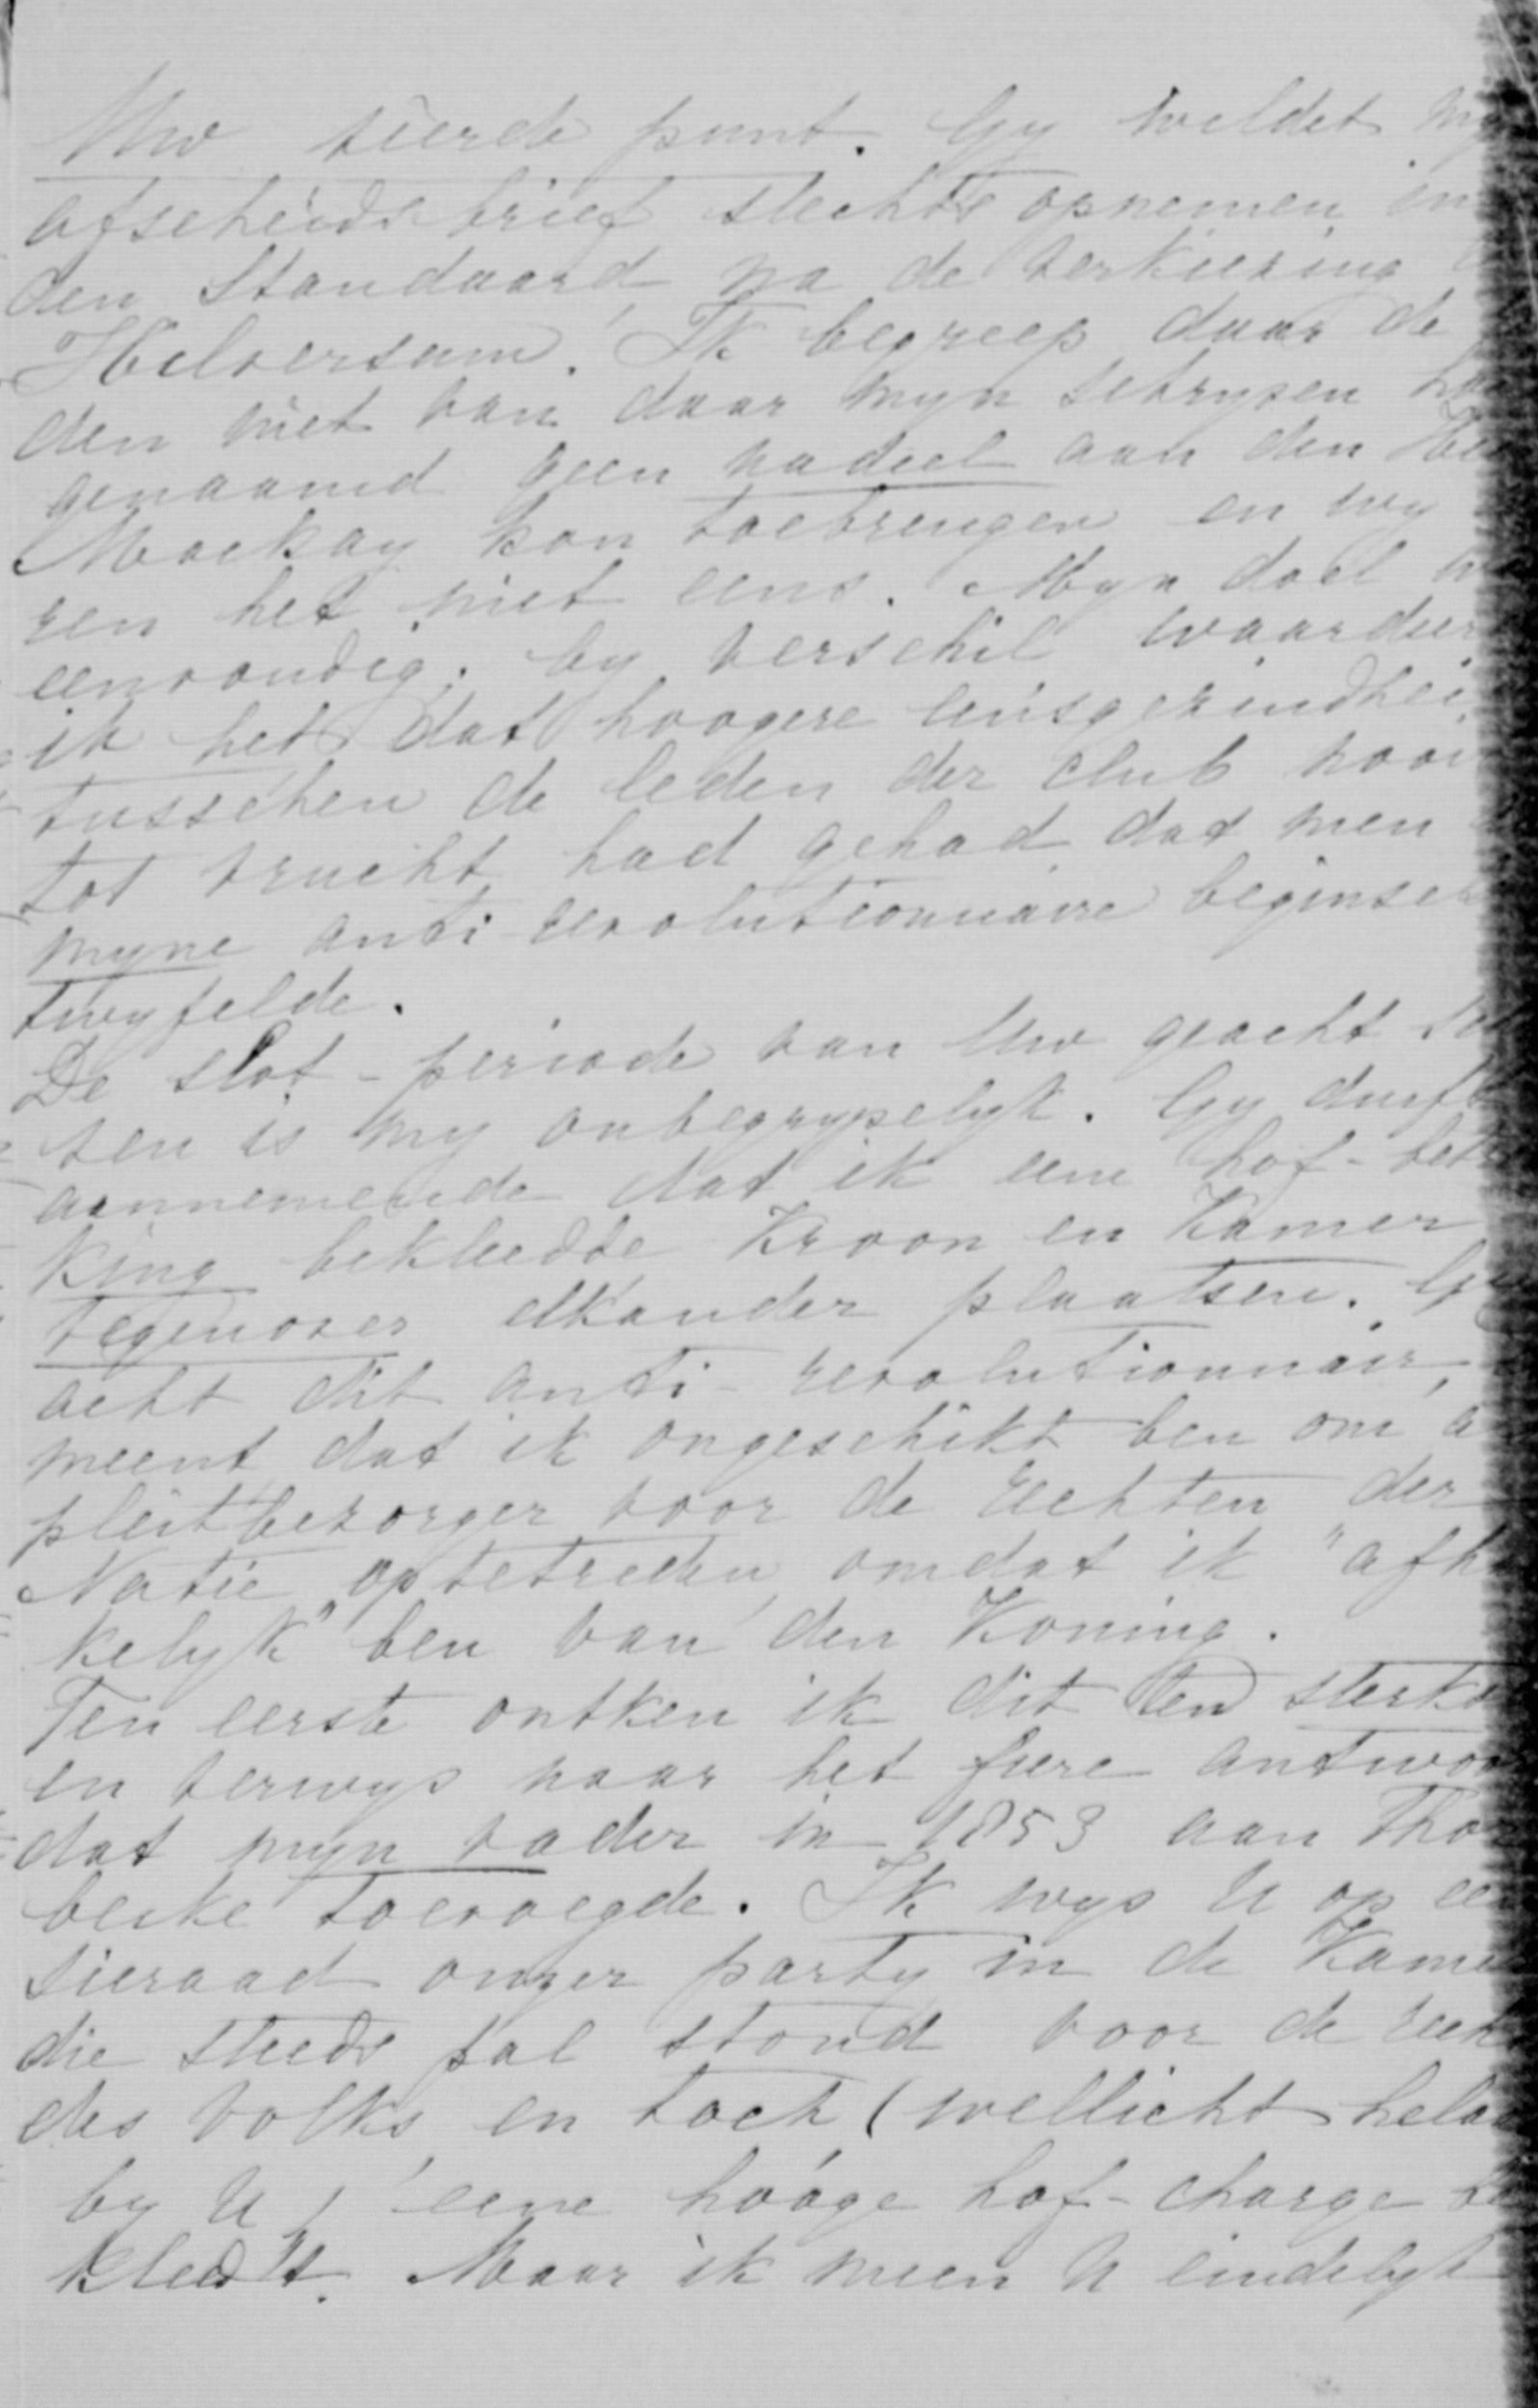 Uw vierde punt. Gy wildet my
afscheidsbrief slechts opnemen in
den Standaard, na de verkiezing
Hilversum. Ik begreep daar de
den niet van daar myn schryven
genaamd geen nadeel aan den
Mackay kon toebrengen en wy
ren het niet eens. Myn doel
eenvoudig. by verschil waardeer
ik het dat hoogere eensgezindhei
tusschen de leden der club nooi
tot vrucht had gehad dat men
myne anti-revolutionnaire beginsel
twyfelde.
De slot-periode van Uw geacht
ven is my onbegrypelyk. Gy durft
aannemende dat ik eene hof-bet
king bekleedde Kroon en Kamer
tegenover elkander plaatsen. Gy
acht dit anti-revolutionnair,
meent dat ik ongeschikt ben om a
pleitbezorger voor de rechten der
Natie optetreden, omdat ik "afh
kelyk" ben van den Koning.
Ten eerste ontken ik dit ten sterks
en verwys naar het fiere antwoo
dat myn vader in 1853 aan Thor
becke toevoegde. Ik wys U op ee
sieraad onzer party in de Kame
die steeds pal stond voor de rech
des volks en toch (wellicht hela
by U) eene hooge hof-charge be
kleedt. Maar ik meen U eindelyk